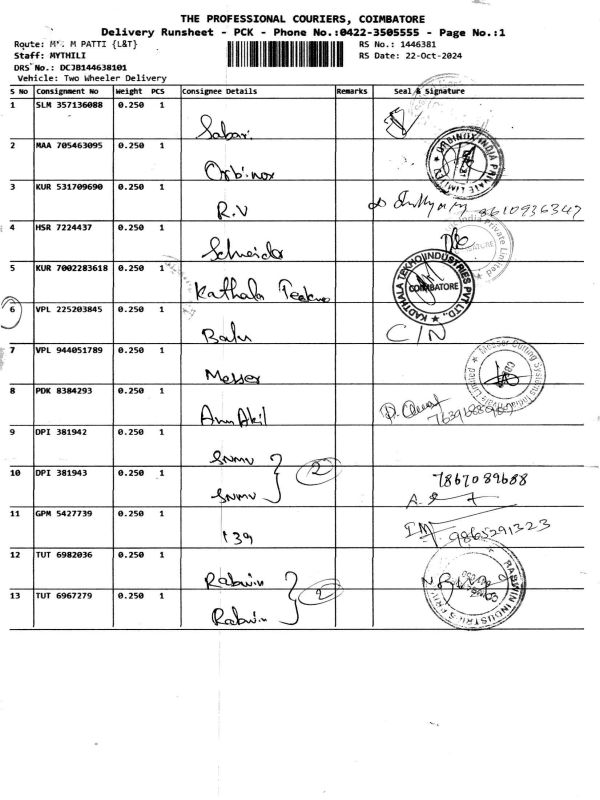 THE PROFESSIONAL COURIERS, COIMBATORE
Delivery Runsheet - PCK - Phone No.:0422-3505555 - Page No.:1
Route: M M PATTI {L&T}
RS No.: 1446381
Staff: MYTHILI
RS Date: 22-Oct-2024
DRS No.: DCJB144638101
Vehicle: Two Wheeler Delivery
S No Consignment No Weight PCS Consignee Details Remarks Seal & Signature
1 SLM 357136088 0.250 1
Sabari
2 MAA 705463095 0.250 1
Orbinox
ORBINOX INDIA PRIVATE LIMITED
3 KUR 531709690 0.250 1
R.V
8610936347
4 HSR 7224437 0.250 1
Schneider
India Private Limited
5 KUR 7002283618 0.250 1
Kathala Tekno
KADTHALA TEKHO INDUSTRIES PVT. LTD.,
COIMBATORE
6 VPL 225203845 0.250 1
Balu
C/N
7 VPL 944051789 0.250 1
Messer
Messer Cutting Systems India Private Limited
8 PDK 8384293 0.250 1
Arun Akil
9 DPI 381942 0.250 1
SNMV
2
10 DPI 381943 0.250 1
SNMV
7867089688
11 GPM 5427739 0.250 1
139
9865291323
12 TUT 6982036 0.250 1
Rabwin
2
13 TUT 6967279 0.250 1
Rabwin
RABWIN INDUSTRIES PRIV